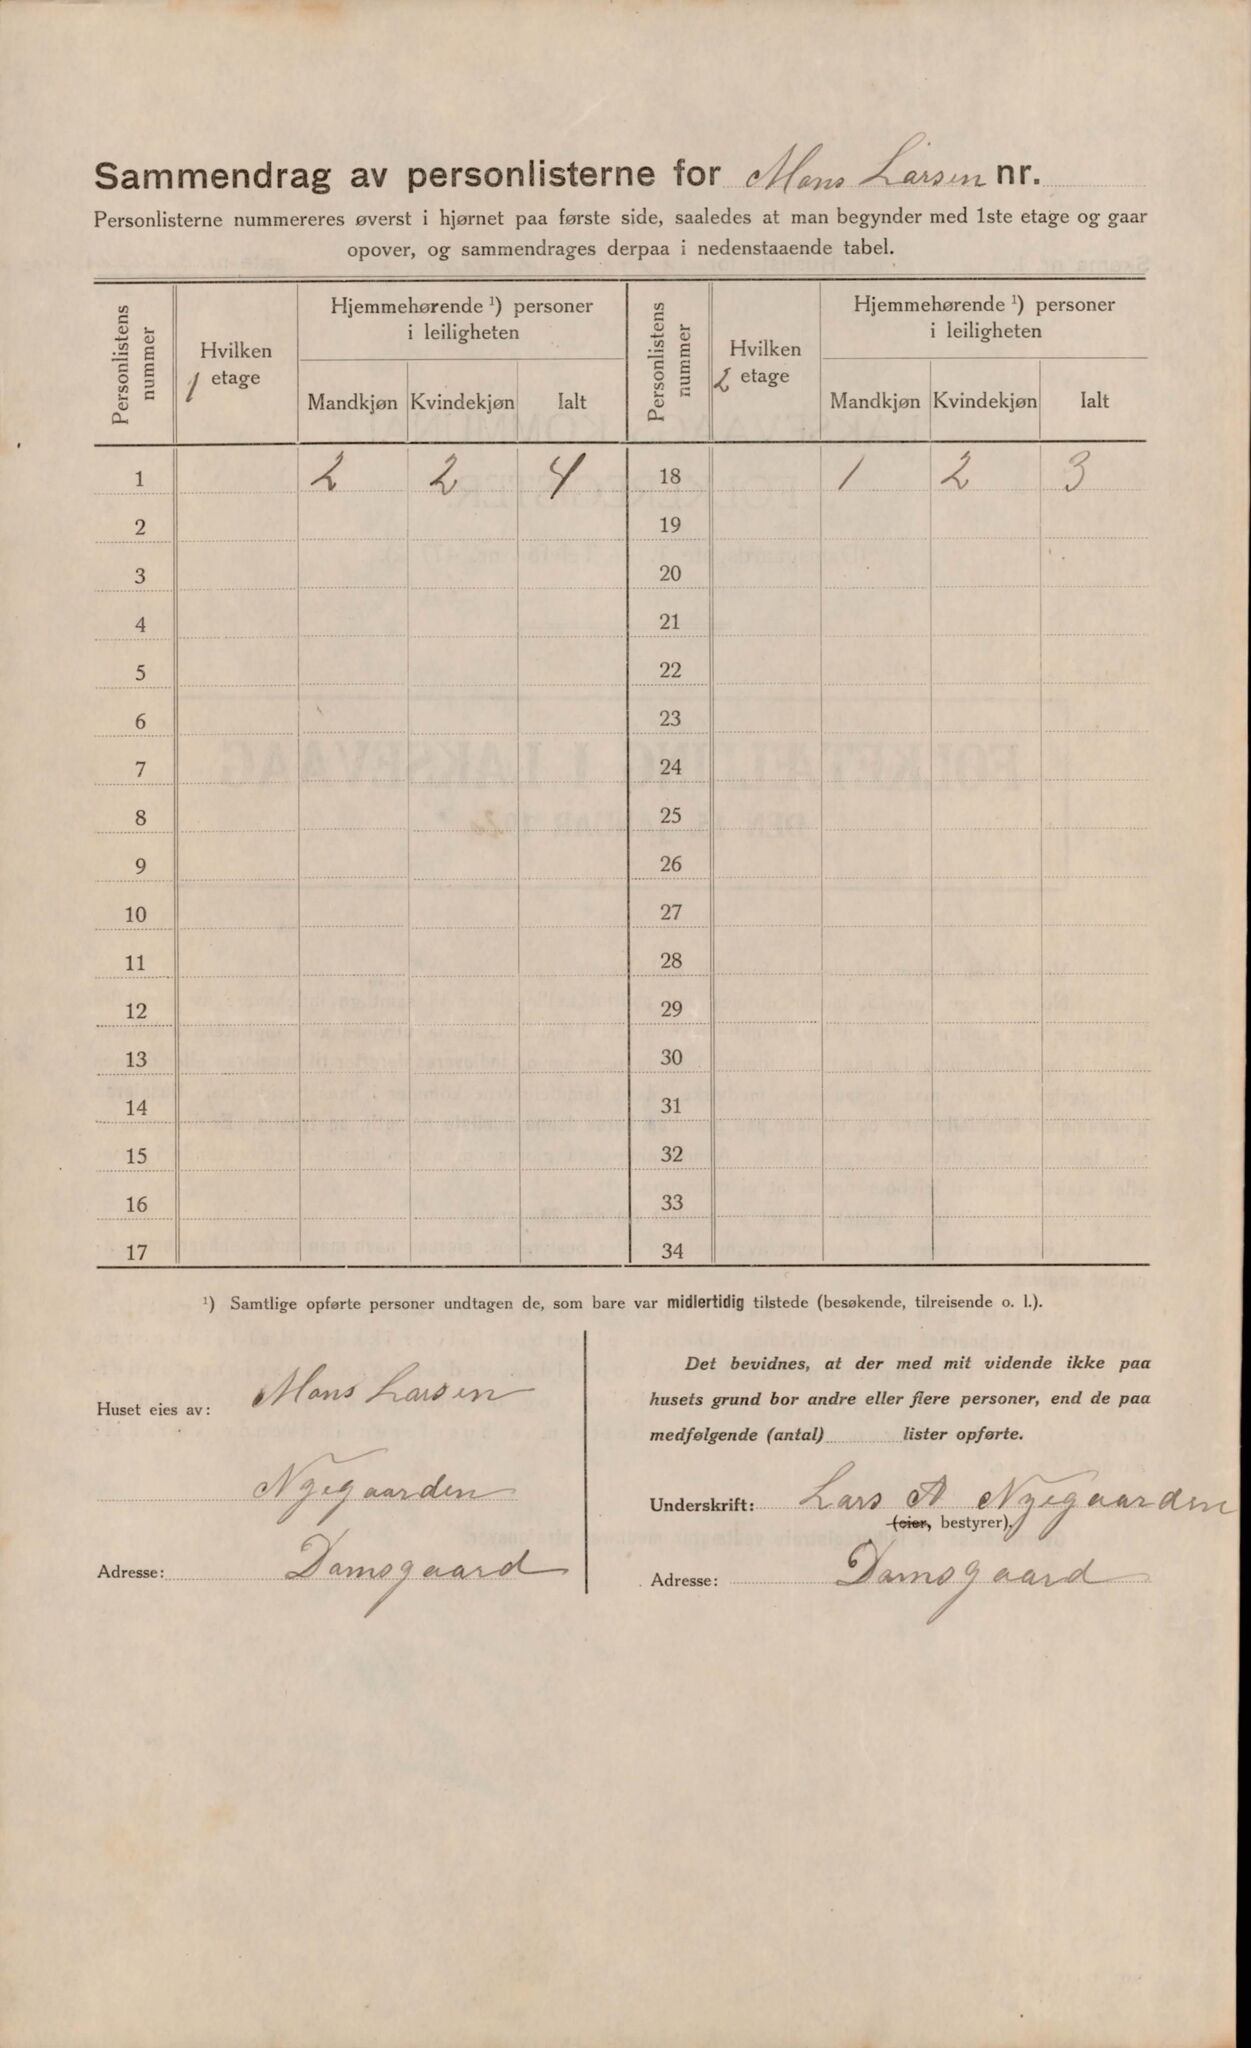 Sammendrag av personlisterne for Mons Larsen nr.
Personlisterne nummereres øverst i hjørnet paa første side, saaledes at man begynder med 1ste etage og gaar
opover, og sammendrages derpaa i nedenstaaende tabel.
Personlistens nummer | Hvilken etage 1 | Hjemmehørende ¹) personer i leiligheten | Personlistens nummer | Hvilken etage 2 | Hjemmehørende ¹) personer i leiligheten
Mandkjøn | Kvindekjøn | Ialt | Mandkjøn | Kvindekjøn | Ialt
1 | 2 | 2 | 4 | 18 | 1 | 2 | 3
2 | 19
3 | 20
4 | 21
5 | 22
6 | 23
7 | 24
8 | 25
9 | 26
10 | 27
11 | 28
12 | 29
13 | 30
14 | 31
15 | 32
16 | 33
17 | 34
¹) Samtlige opførte personer undtagen de, som bare var midlertidig tilstede (besøkende, tilreisende o. l.).
Huset eies av: Mons Larsen
Nygaarden
Adresse: Damsgaard
Det bevidnes, at der med mit vidende ikke paa
husets grund bor andre eller flere personer, end de paa
medfølgende (antal) lister opførte.
Underskrift: Lars A Nygaarden
(eier, bestyrer).
Adresse: Damsgaard